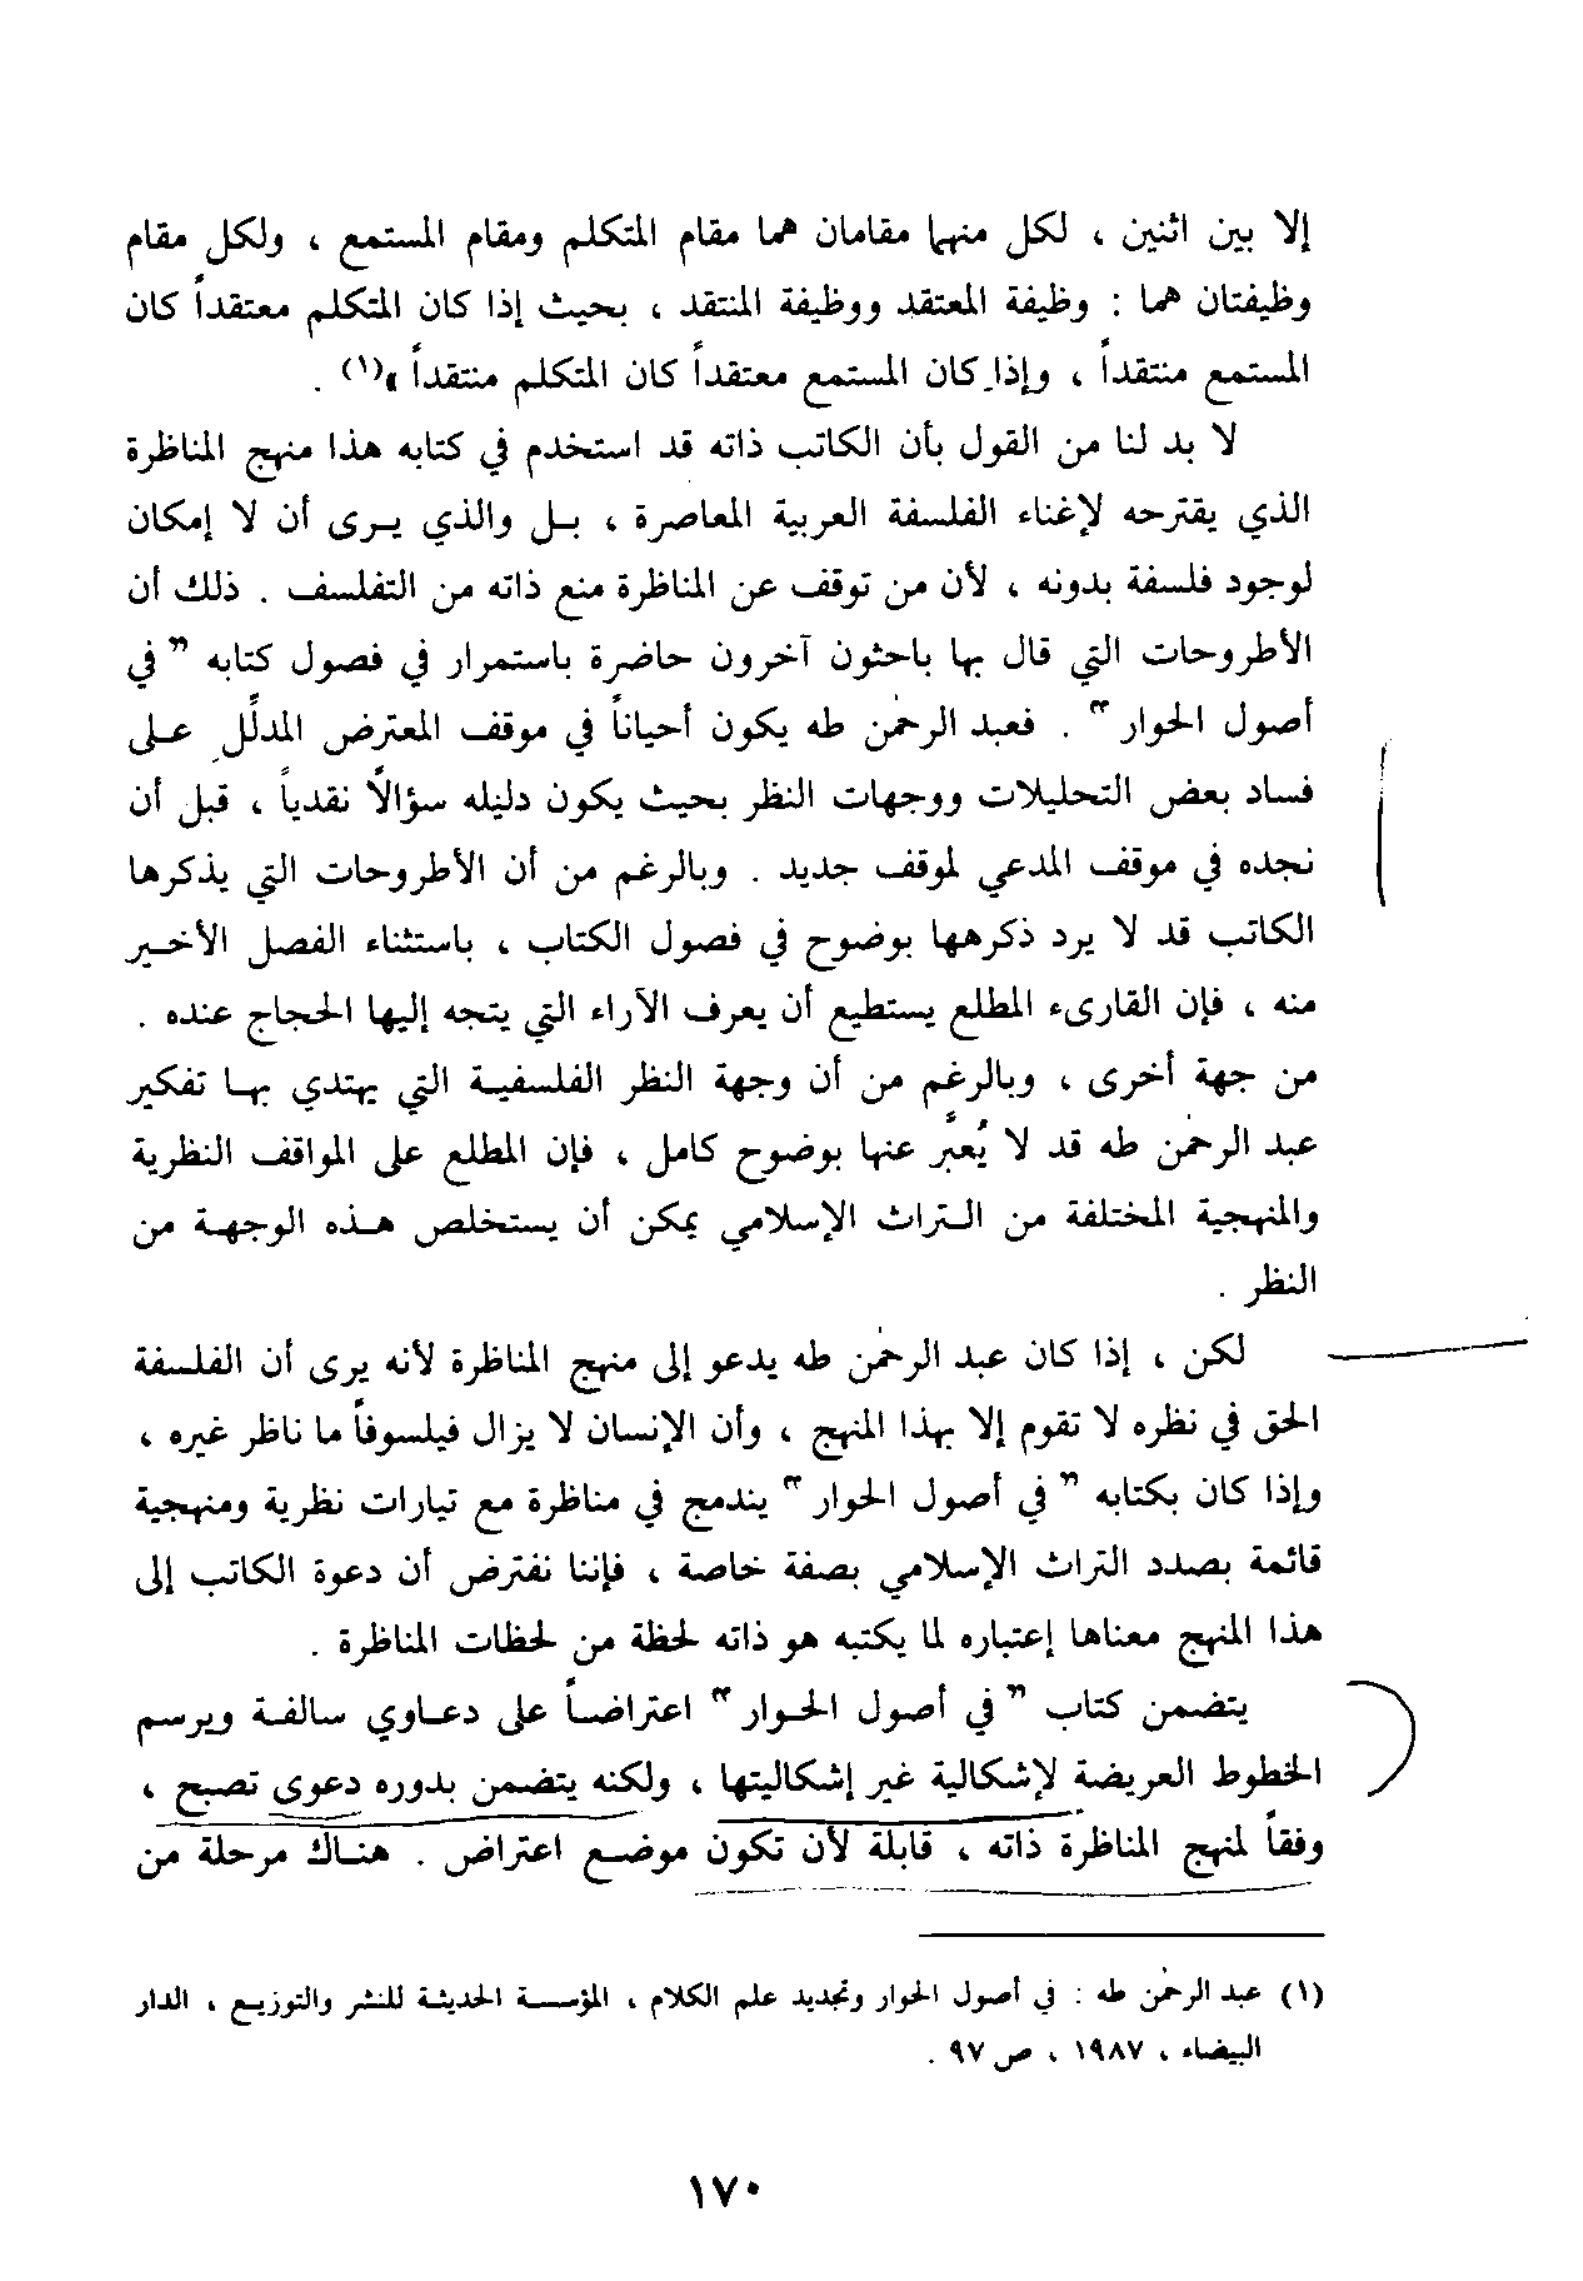 إلا بين اثنين ، لكل منهما مقامان هما مقام المتكلم ومقام المستمع ، ولكل مقام
وظيفتان هما : وظيفة المعتقد ووظيفة المنتقد ، بحيث إذا كان المتكلم معتقداً كان
المستمع منتقداً ، وإذا كان المستمع معتقداً كان المتكلم منتقداً »(١) .
لا بد لنا من القول بأن الكاتب ذاته قد استخدم في كتابه هذا منهج المناظرة
الذي يقترحه لإغناء الفلسفة العربية المعاصرة ، بل والذي يرى أن لا إمكان
لوجود فلسفة بدونه ، لأن من توقف عن المناظرة منع ذاته من التفلسف . ذلك أن
الأطروحات التي قال بها باحثون آخرون حاضرة باستمرار في فصول كتابه " في
أصول الحوار " . فعبد الرحمٰن طه يكون أحياناً في موقف المعترض المدلِّل على
فساد بعض التحليلات ووجهات النظر بحيث يكون دليله سؤالاً نقدياً ، قبل أن
نجده في موقف المدعي لموقف جديد . وبالرغم من أن الأطروحات التي يذكرها
الكاتب قد لا يرد ذكرهها بوضوح في فصول الكتاب ، باستثناء الفصل الأخير
منه ، فإن القارىء المطلع يستطيع أن يعرف الآراء التي يتجه إليها الحجاج عنده .
من جهة أخرى ، وبالرغم من أن وجهة النظر الفلسفية التي يهتدي بها تفكير
عبد الرحمٰن طه قد لا يُعبَّر عنها بوضوح كامل ، فإن المطلع على المواقف النظرية
والمنهجية المختلفة من التراث الإسلامي يمكن أن يستخلص هذه الوجهة من
النظر .
لكن ، إذا كان عبد الرحمٰن طه يدعو إلى منهج المناظرة لأنه يرى أن الفلسفة
الحق في نظره لا تقوم إلا بهذا المنهج ، وأن الإنسان لا يزال فيلسوفاً ما ناظر غيره ،
وإذا كان بكتابه " في أصول الحوار " يندمج في مناظرة مع تيارات نظرية ومنهجية
قائمة بصدد التراث الإسلامي بصفة خاصة ، فإننا نفترض أن دعوة الكاتب إلى
هذا المنهج معناها إعتباره لما يكتبه هو ذاته لحظة من لحظات المناظرة .
يتضمن كتاب " في أصول الحوار " اعتراضاً على دعاوي سالفة ويرسم
الخطوط العريضة لإشكالية غير إشكاليتها ، ولكنه يتضمن بدوره دعوى تصبح ،
وفقاً لمنهج المناظرة ذاته ، قابلة لأن تكون موضع اعتراض . هناك مرحلة من
(١) عبد الرحمٰن طه : في أصول الحوار وتجديد علم الكلام ، المؤسسة الحديثة للنشر والتوزيع ، الدار
البيضاء ، ١٩٨٧ ، ص ٩٧ .
١٧٠